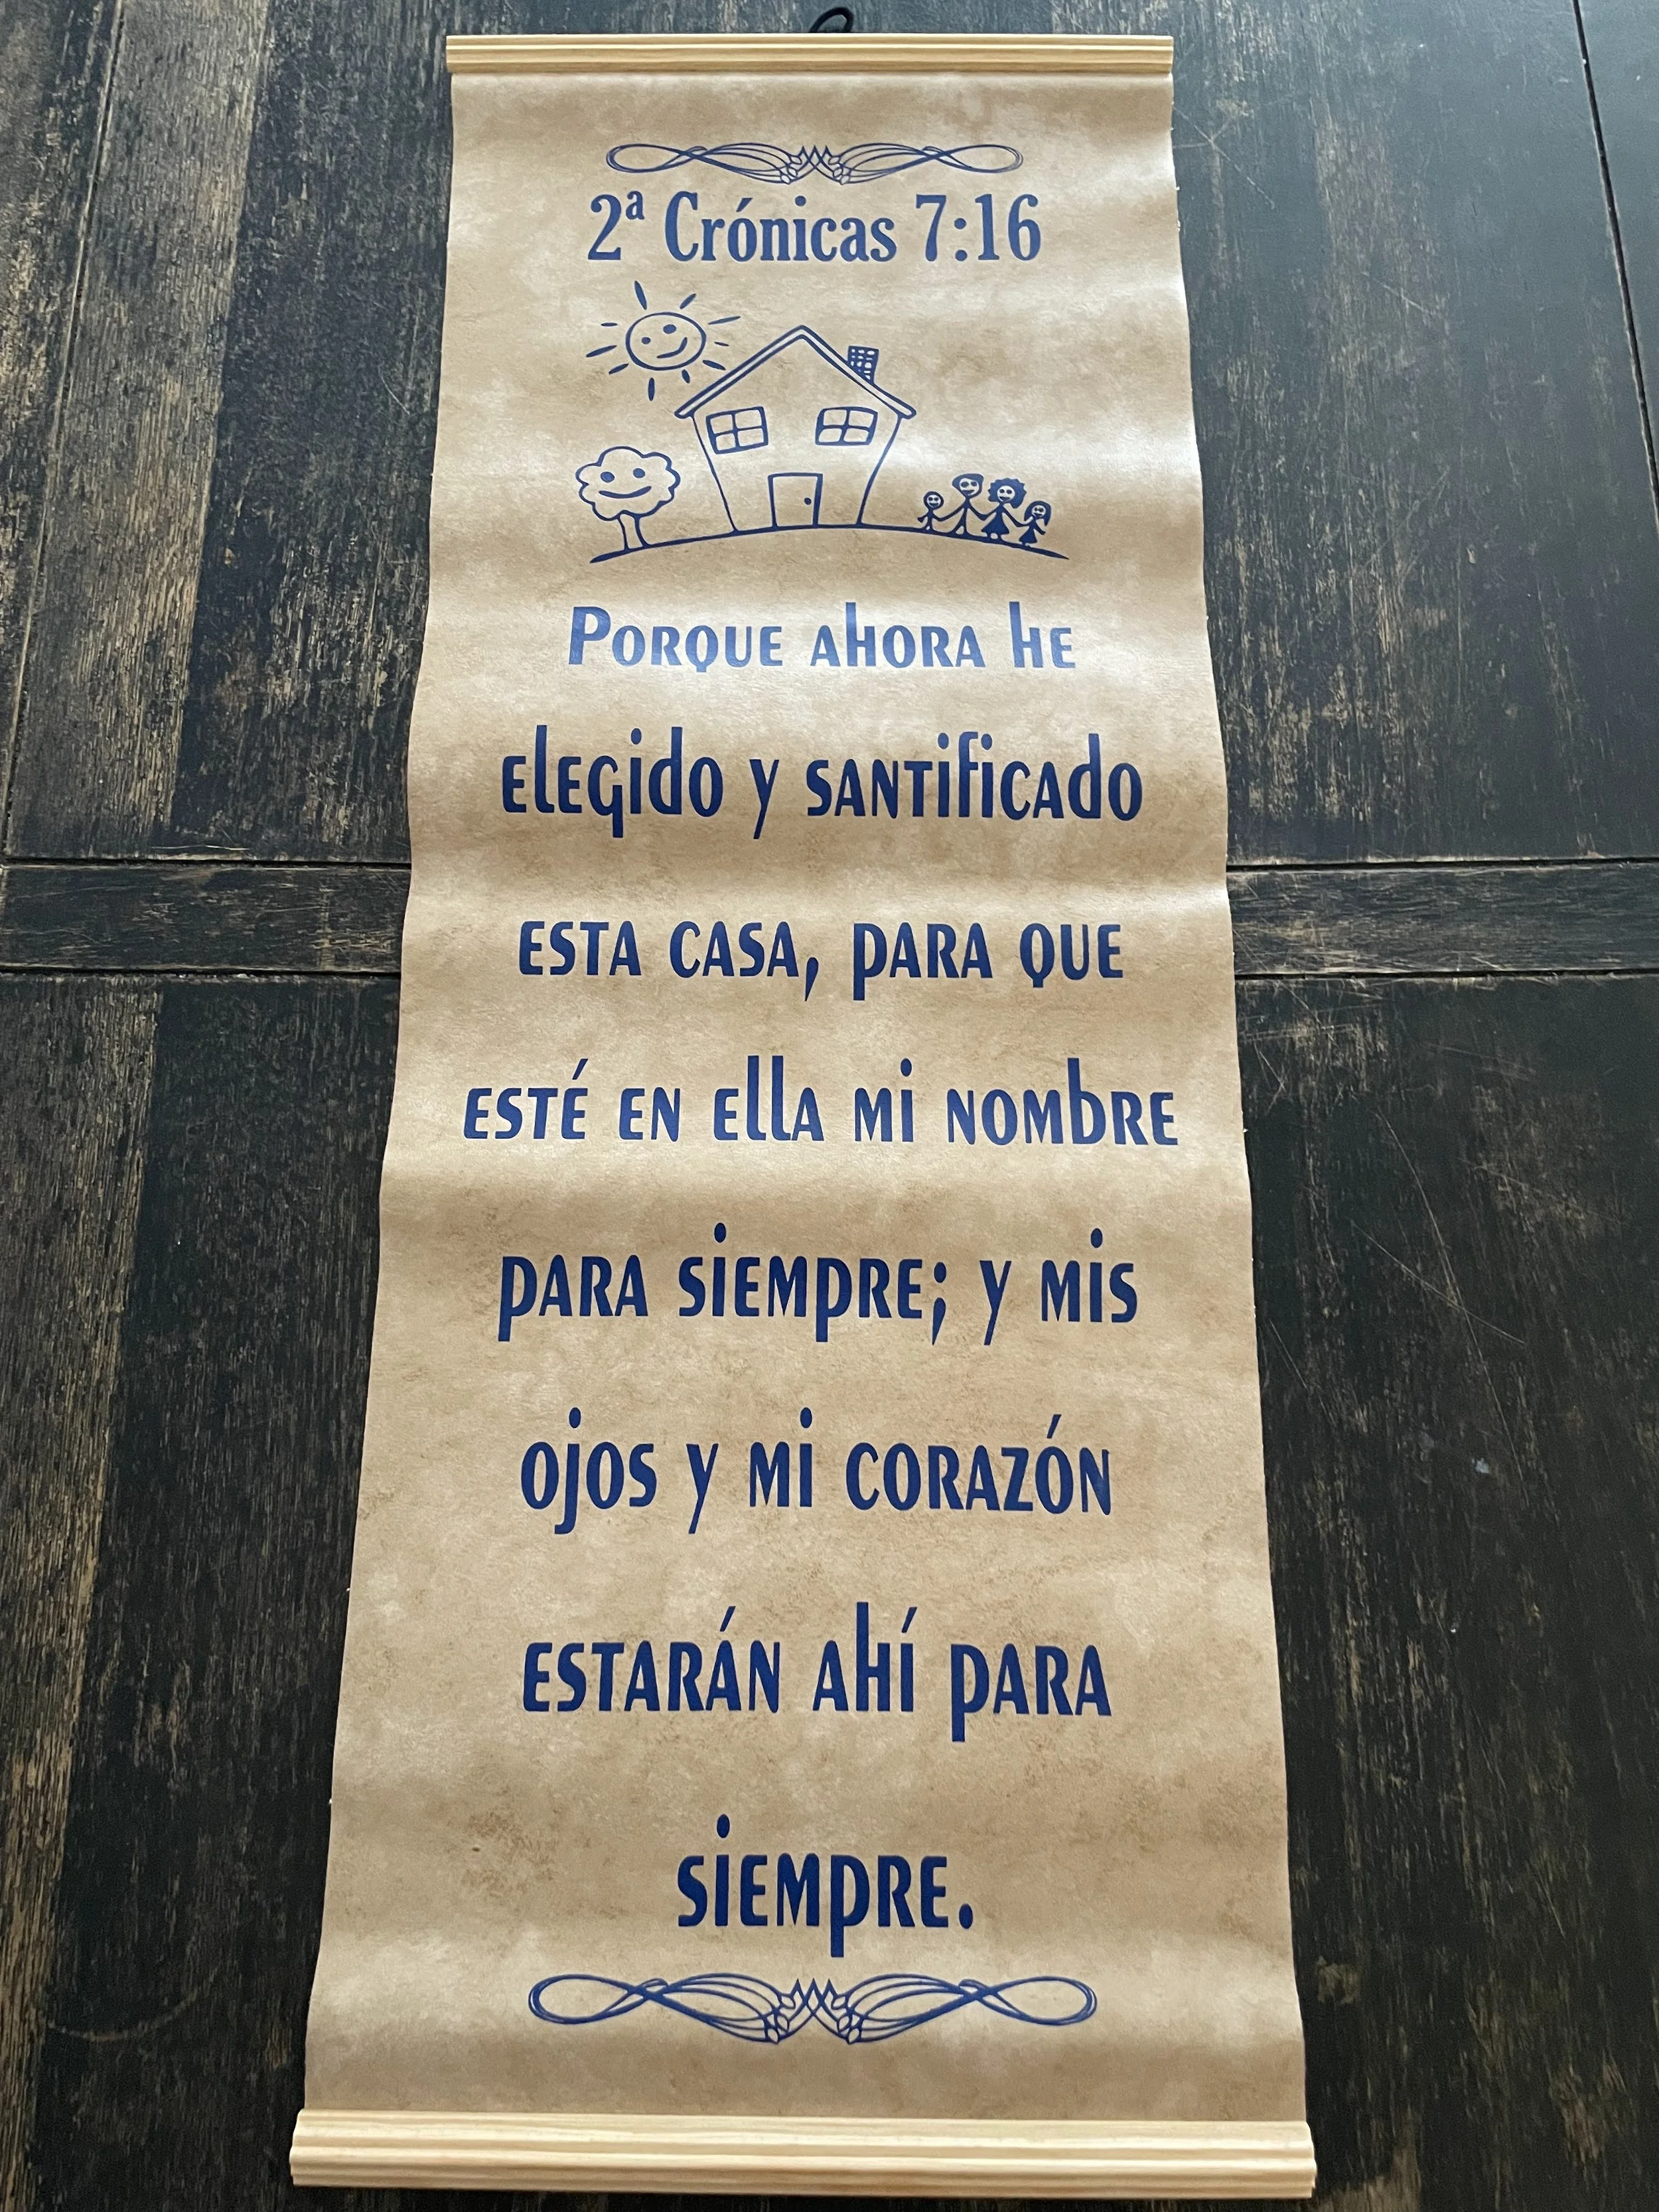 2ª Crónicas 7:16
Porque ahora he
elegido y santificado
esta casa, para que
esté en ella mi nombre
para siempre; y mis
ojos y mi corazón
estarán ahí para
siempre.